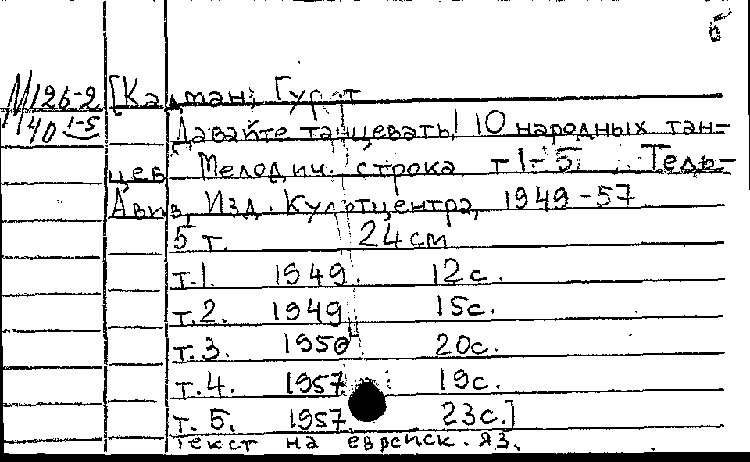 б
М126-2 [Кадман, Гурит
40 1-5 Давайте танцевать! 10 народных тан-
цев. Мелодич. строка. т 1-5. Тель-
Авив, Изд. Культцентра, 1949-57
5 т. 24 см
т.1. 1949. 12с.
т.2. 1949. 15с.
т.3. 1950 20с.
т.4. 1957 19с.
т.5. 1957 23с.]
Текст на еврейск. яз.